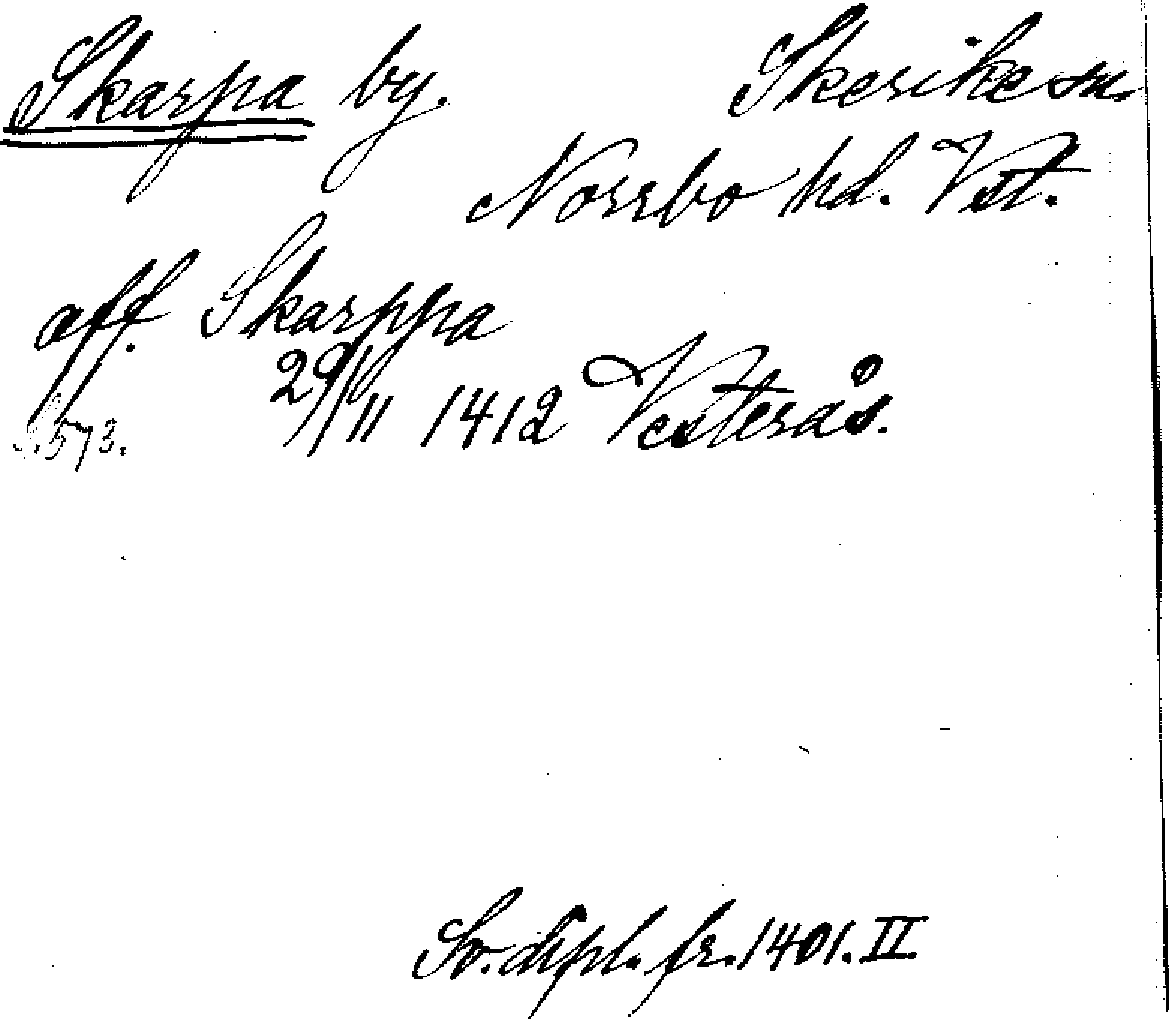 Skarpa by. Skerike sn.
Norrbo hd. Vstt.
aff Skarppa
29/11 1412 Vesterås.
S. 573.
Sv. dipl. fr. 1401. II